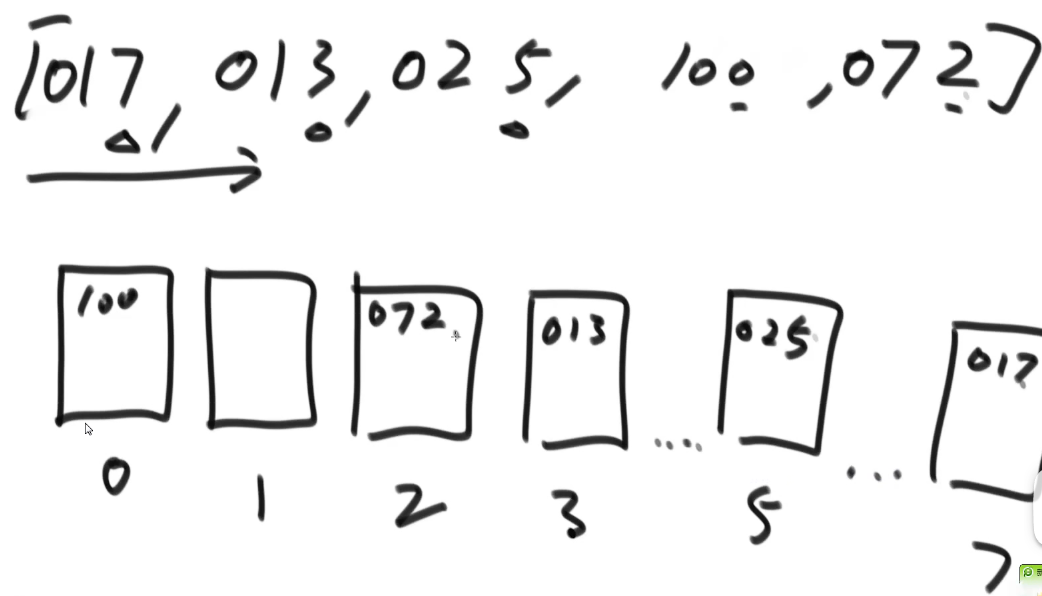 [017, 013, 025, 100, 072]
100 072 013 025 017
0 1 2 3 .... 5 ... 7